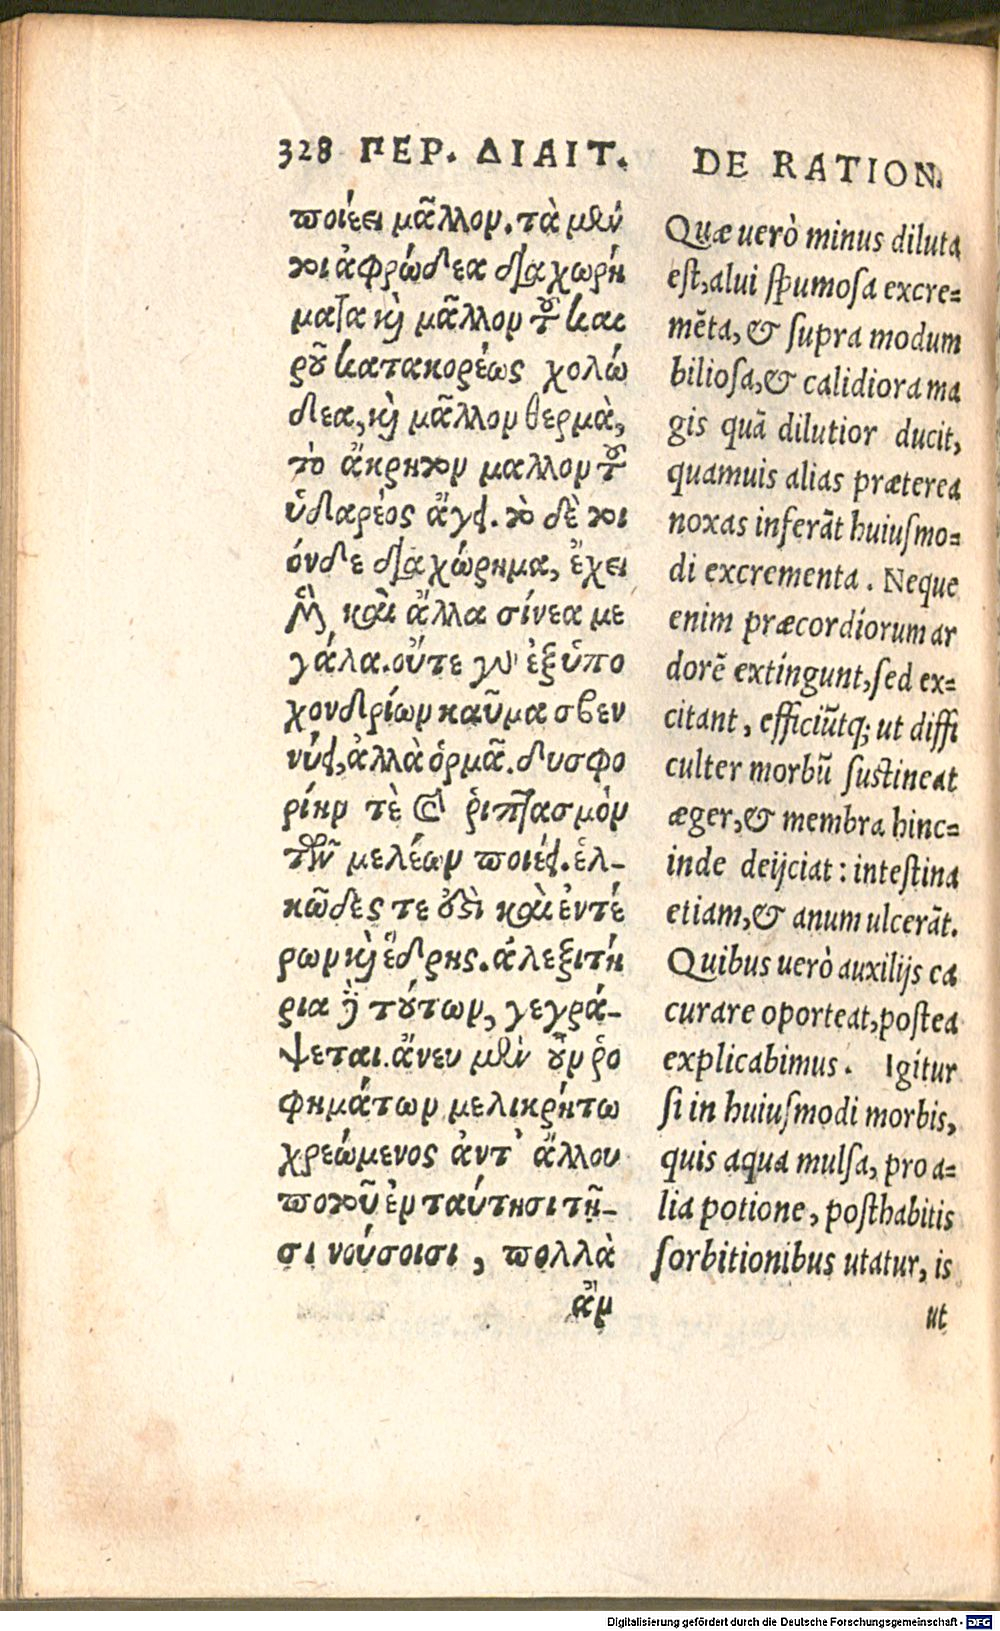 328 ΠΕΡ. ΔΙΑΙΤ.
ποιέει μᾶλλον. τὰ μὲν
τοι ἀφρώδεα διαχωρή
ματα καὶ μᾶλλον τοῦ και
ροῦ κατακορέως χολώ
δεα, καὶ μᾶλλον θερμὰ,
τὸ ἄκρητον μαλλον τοῦ
ὑδαρέος ἄγει. τὸ δὲ τοι
όνδε διαχώρημα, ἔχει
μὲν καὶ ἄλλα σίνεα με
γάλα. οὔτε γὰρ ἐξ ὑπο
χονδρίων καῦμα σβεν
νύει, ἀλλὰ ὁρμᾶ. δυσφο
ρίην τὲ καὶ ῥιπτασμὸν
τῶν μελέων ποιέει. ἑλ-
κῶδές τε ἐστὶ καὶ ἐντέ
ρων καὶ ἕδρης. ἀλεξιτή
ρια δὲ τούτων, γεγρά-
ψεται. ἄνευ μὲν οὖν ῥο
φημάτων μελικρήτω
χρεώμενος ἀντ' ἄλλου
ποτοῦ ἐν ταύτησι τῇ-
σι νούσοισι, πολλὰ
ἂν
DE RATION.
Quæ uerò minus diluta
est, alui spumosa excre=
mẽta, & supra modum
biliosa, & calidiora ma
gis quã dilutior ducit,
quamuis alias præterea
noxas inferãt huiusmo=
di excrementa. Neque
enim præcordiorum ar
dorẽ extingunt, sed ex=
citant, efficiũtq; ut diffi
culter morbũ sustineat
æger, & membra hinc=
inde deijciat: intestina
etiam, & anum ulcerãt.
Quibus uerò auxilijs ca
curare oporteat, postea
explicabimus. Igitur
si in huiusmodi morbis,
quis aqua mulsa, pro a=
lia potione, posthabitis
sorbitionibus utatur, is
ut
Digitalisierung gefördert durch die Deutsche Forschungsgemeinschaft - DFG